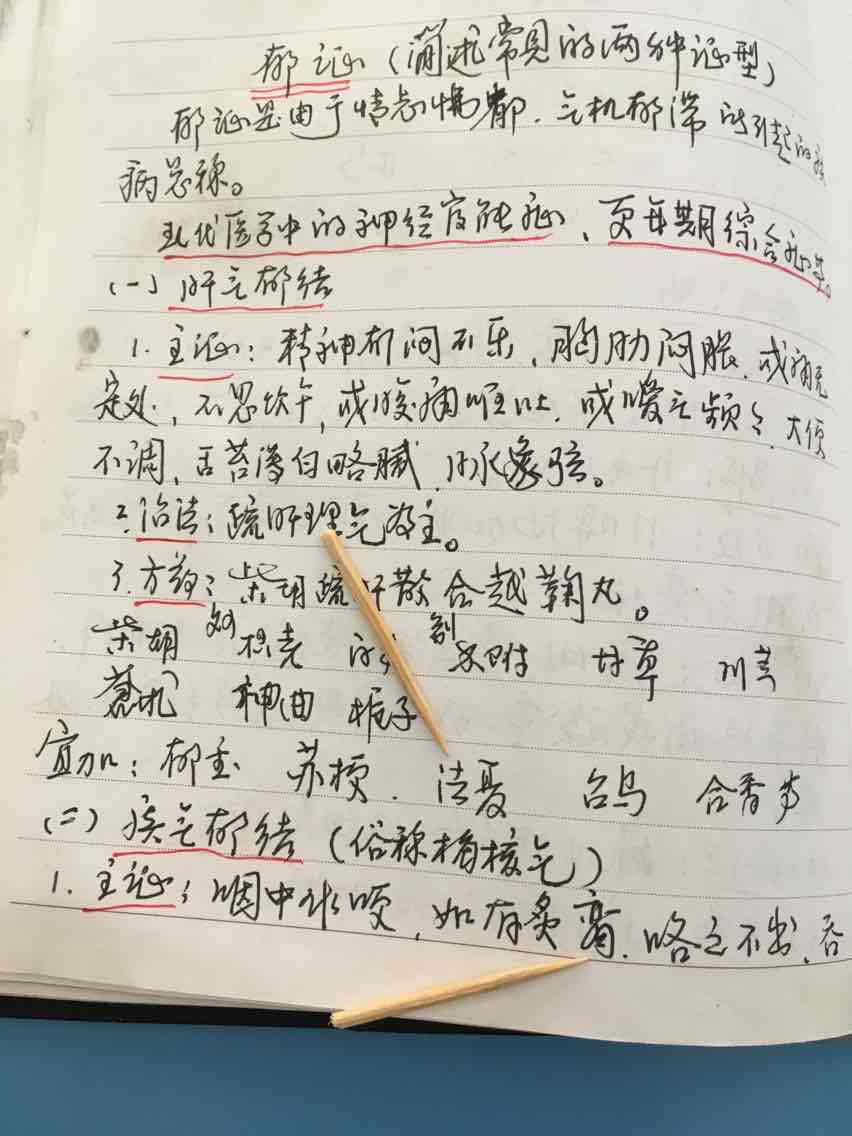 郁证（简述常见的两种证型）
郁证是由于情志怫郁．气机郁滞所引起的疾
病总称。
现代医学中的神经官能症、更年期综合征等。
(一) 肝气郁结
1. 主证：精神郁闷不乐、胸肋闷胀、或痛无
定处，不思饮午，或腹痛呕吐．或嗳气频々、大便
不调、舌苔薄白略腻、脉象弦。
2. 治法：疏肝理气为主。
3. 方药：柴胡疏肝散合越鞠丸。
柴胡 枳壳 制 香附 甘草 川芎
苍术 神曲 栀子
宜加：郁金 苏梗． 法夏 台乌 合香
(二) 痰气郁结（俗称梅核气）
1. 主证：咽中水哽，如有炙脔．咯之不出、吞